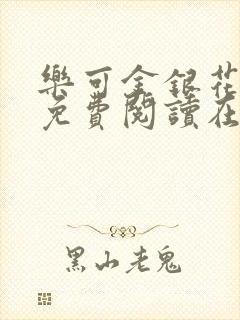 樂可金銀花
免費閱讀在
黑山老鬼